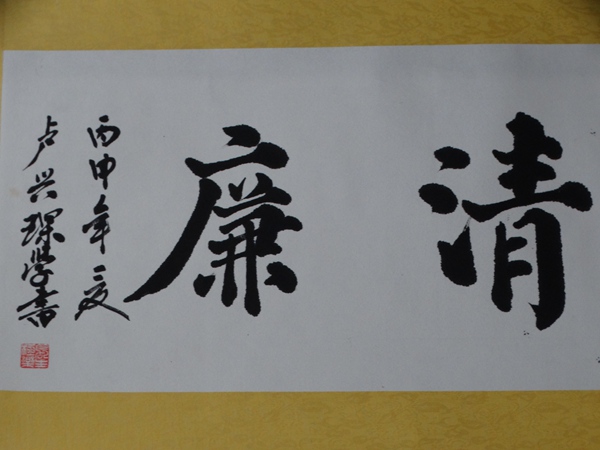 清廉
丙申年夏
卢兴琛学书